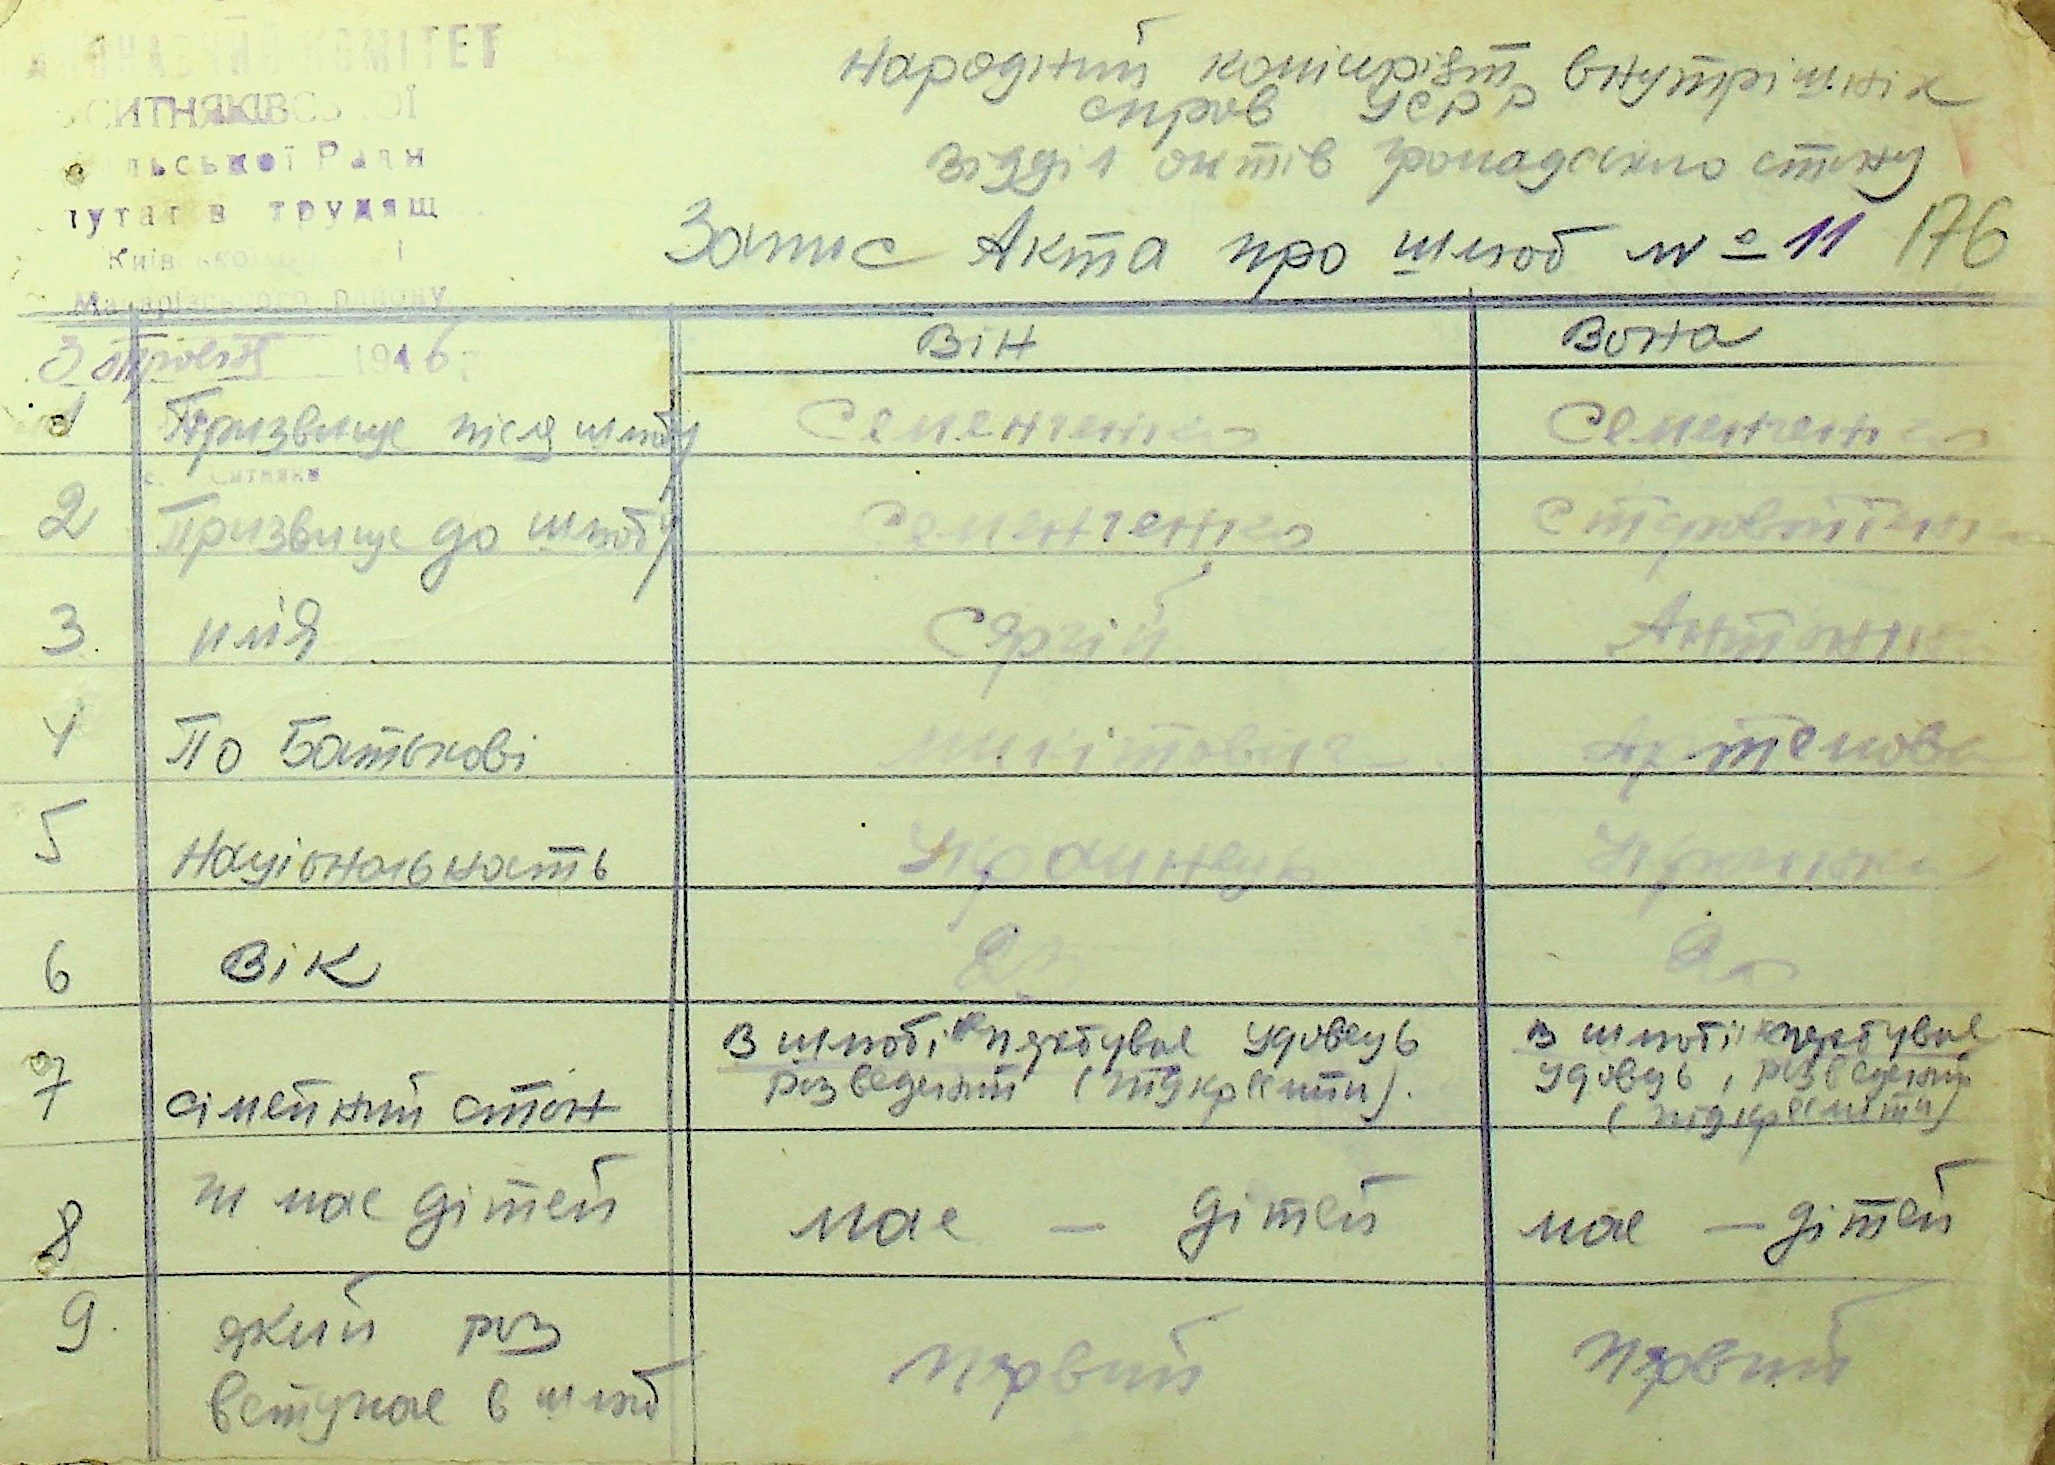 КОМІТЕТ
СИТНЯКІВСЬКОЇ
льської Ради
путатів трудящ
Київ
Макарівського району
3 1946
с. Ситняки
Народний комісаріят внутрішніх
справ УСРР
Відділ актів громадського стану
Запис Акта про шлюб № 11 176
Він Вона
1 Призвище після шлюбу Семенченко Семенченко
2 Призвище до шлюбу Семенченко
3. имя Сергій Антонин
4 По Батькові микітовіч Артемова
5 Національность Украинець Украінка
6 Вік
7 сімейний стан
В шлюбі не перебувае удовець
розведений (підкреслити).
В шлюбі не перебувае
удовець, розведений
(підкреслити)
8 чи мае дітей мае — дітей мае — дітей
9. який раз
вступае в шлюб
Первий Первий